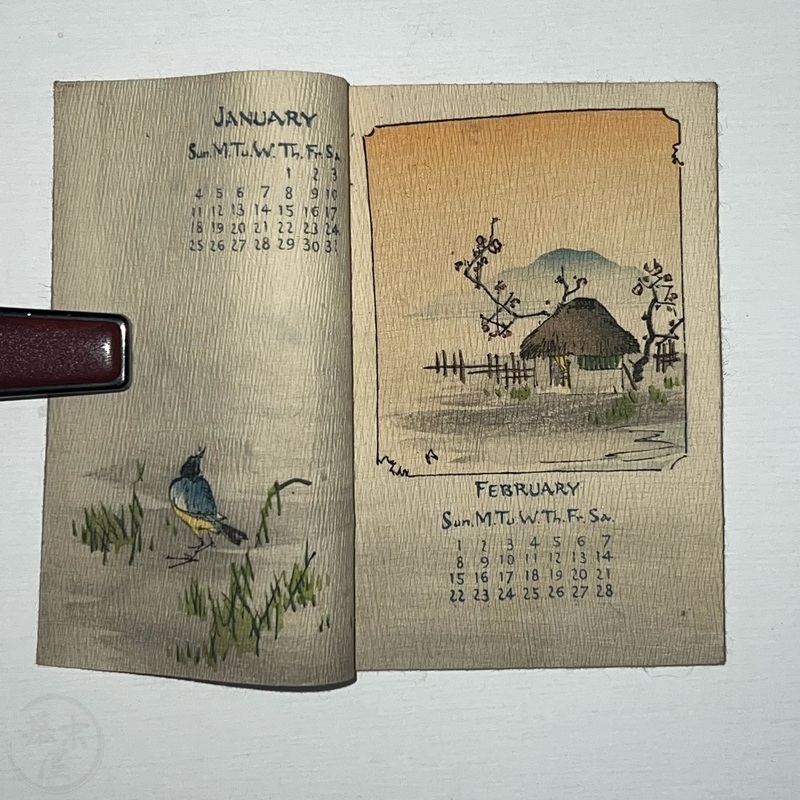 JANUARY
Sun. M. Tu. W. Th. Fr. Sa
1 2 3
4 5 6 7 8 9 10
11 12 13 14 15 16 17
18 19 20 21 22 23 24
25 26 27 28 29 30 31
FEBRUARY
Sun. M. Tu. W. Th. Fr. Sa.
1 2 3 4 5 6 7
8 9 10 11 12 13 14
15 16 17 18 19 20 21
22 23 24 25 26 27 28